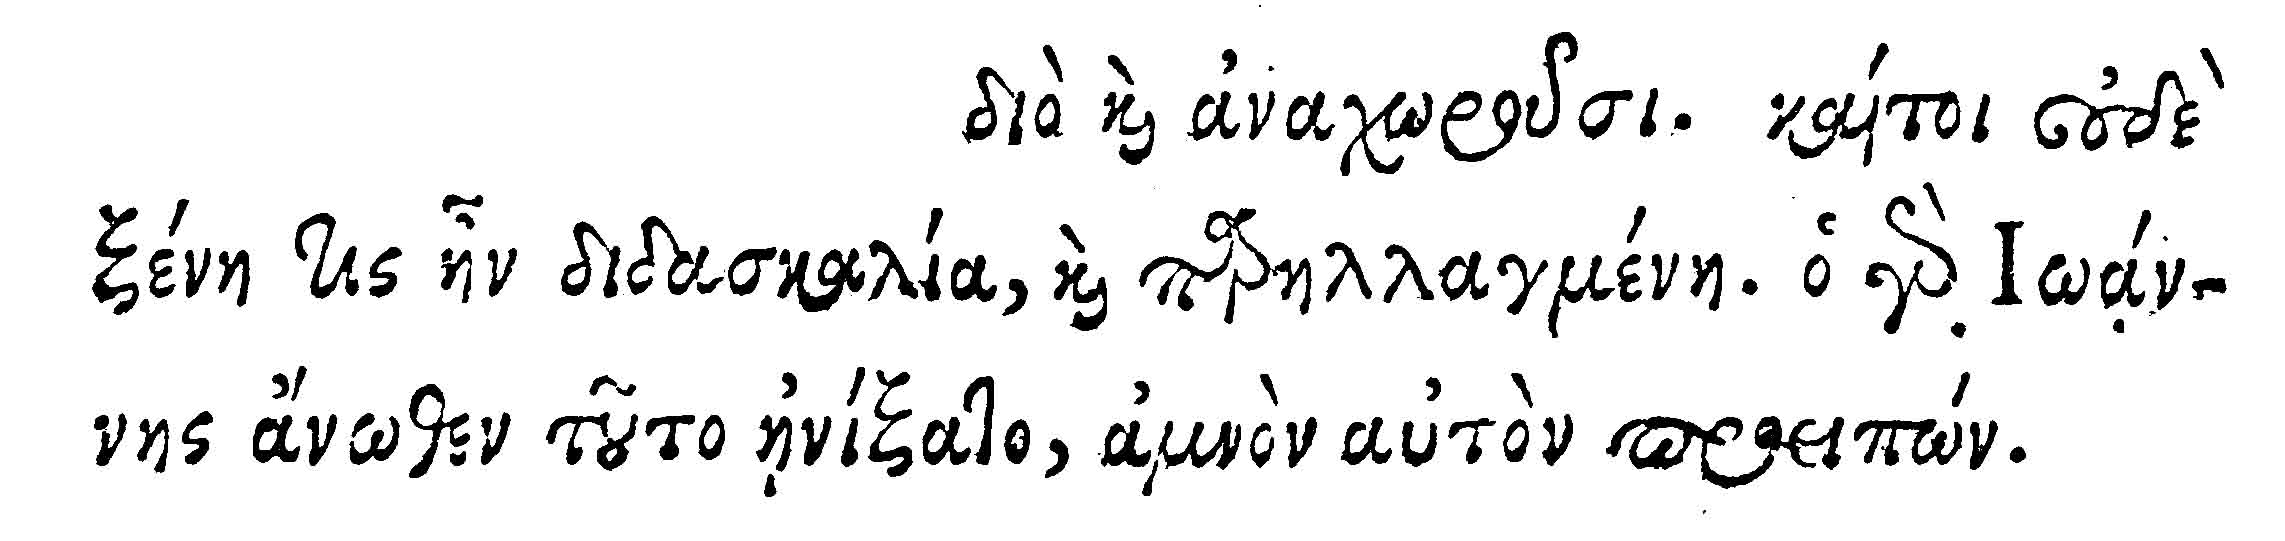 διὸ καὶ ἀναχωροῦσι. καίτοι οὐδὲ
ξένη τις ἦν διδασκαλία, καὶ παρηλλαγμένη. ὁ γὰρ Ἰωάν-
νης ἄνωθεν τοῦτο ᾐνίξατο, ἀμνὸν αὐτὸν προειπών.